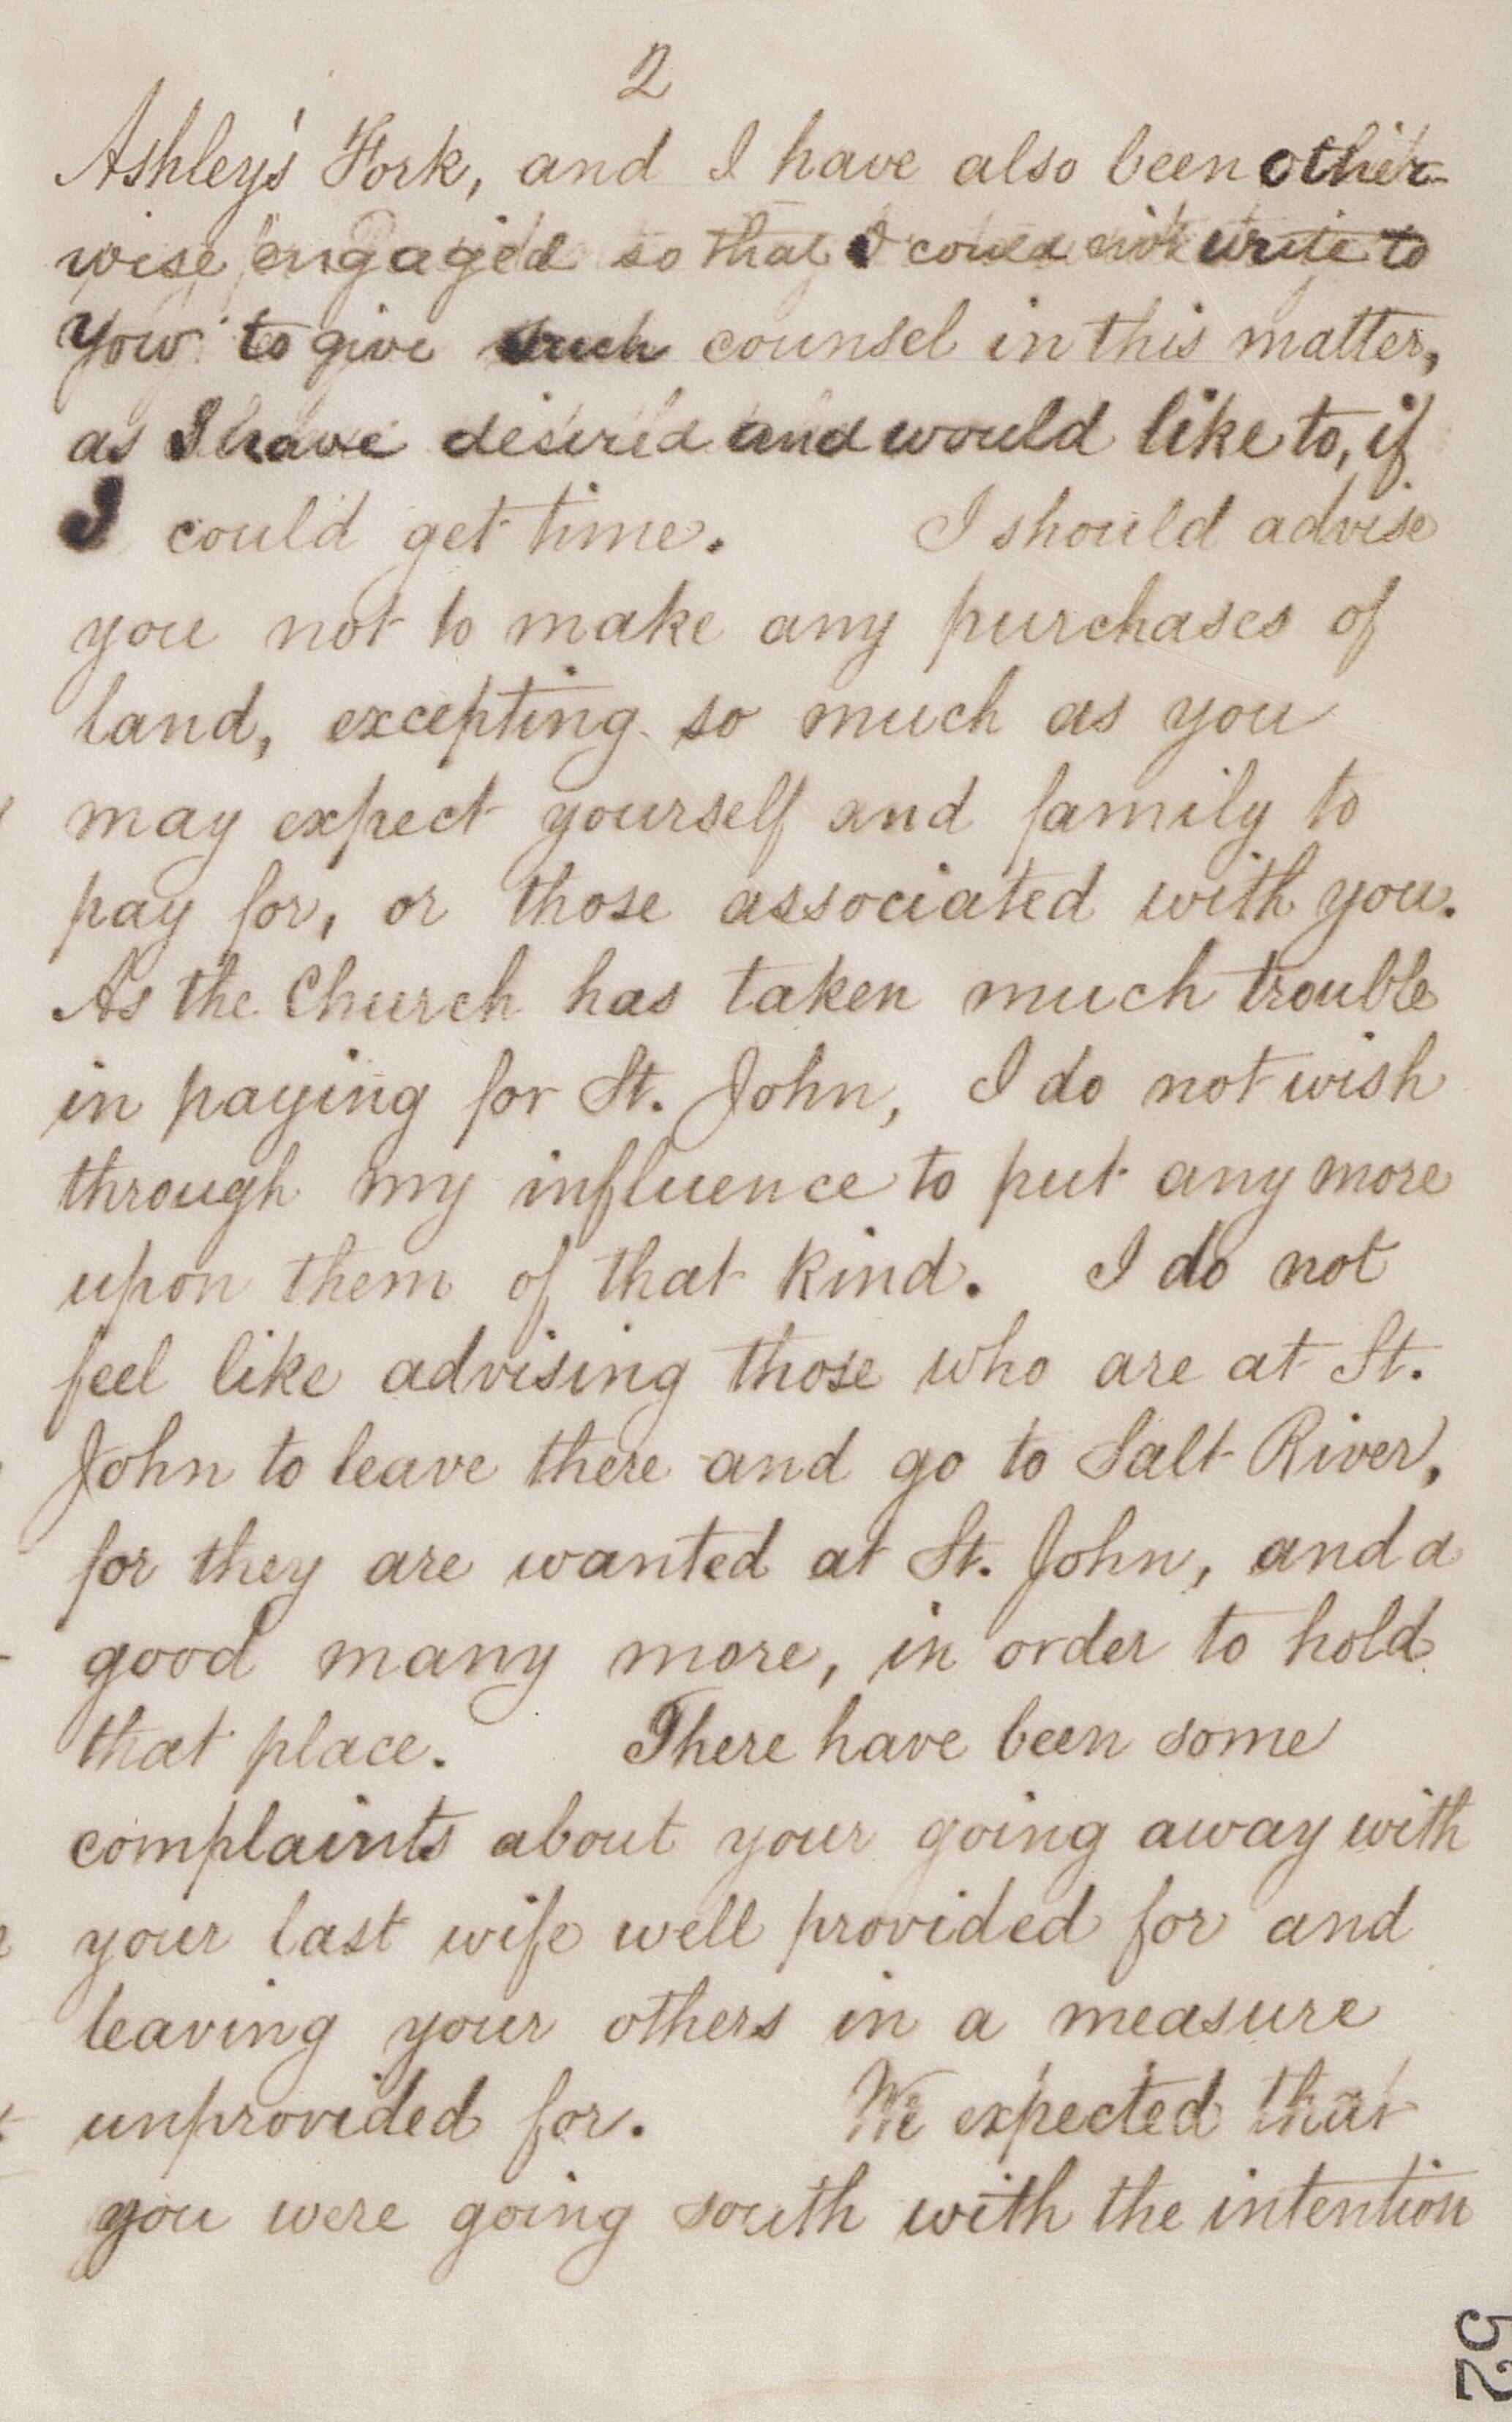 2
Ashley's Fork, and I have also been other-
wise engaged so that I could not write to
you to give such counsel in this matter,
as I have desired and would like to, if
I could get time. I should advise
you not to make any purchases of
land, excepting so much as you
may expect yourself and family to
pay for, or those associated with you.
As the Church has taken much trouble
in paying for St. John, I do not wish
through my influence to put any more
upon them of that kind. I do not
feel like advising those who are at St.
John to leave there and go to Salt River,
for they are wanted at St. John, and a
good many more, in order to hold
that place. There have been some
complaints about your going away with
your last wife well provided for and
leaving your others in a measure
unprovided for. We expected that
you were going south with the intention
52